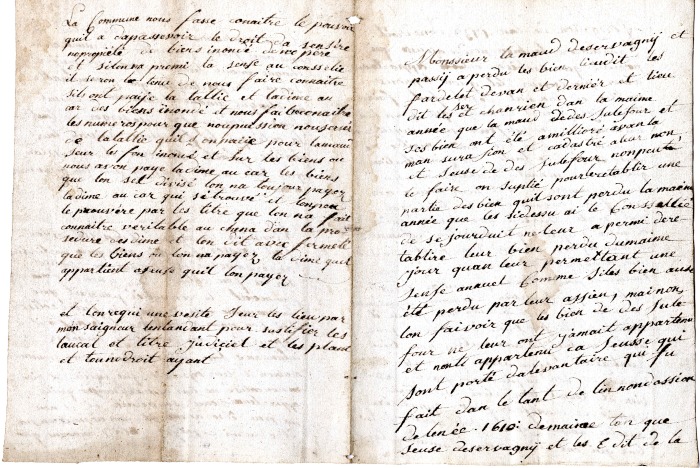 La Commune nous fasse conaitre le pouvoir
quil a dapassevoir le droit da sensere
nepropiété de biens inondé devapère
et silonva premi la sense au conselié
et seron la tenu de nous faire connaitre
sils ont paiye la tallie et ladime au
car des biens inondé et nous fai boconaitre
les numeros pour que nous puission nous
de la tallie quil donnaite pour
seur le fon inond et sur les biens ou
nous avon paye ladime au car les biens
que lon set devisé lon na toujour payer
ladime au car qui se trouve et lonpeu
le prouvere par les litre que lon na fait
connaitre veritable au chana dan la pro
sedure des dime et lon dit avec fermeté
que les biens ou lon na payer la dime quil
appartient a ceuse quil lon payer
et lon requi une vesite seur les lieu par
mon saigneur lentandant pour justifier les
laucal et litre judiciel et les plans
et tounidroit aiyant
Monssieur la maud deservagnij et
passij a perdu les bien liuidit les
fardelet devan et dernier et lieu
dit les et chanrien dan la maime
année que la maud dedes Sulefour et
ses bien ont été amillioré avan la
man sura sion et cadastré alur non
et seuse de des Sulefour non peuta
le faire on suplié pour letablir une
partie des bien quil sont perdu la maime
année que les sidessu ai le Conssellié
de se jourduit ne leur a permi dere
tablire leur bien perdu dumaime
jour quan leur permetlant une
sense anuel Comme siles bien aus
été perdu par leur assien, mai non,
lon fai voir que les bien de des Sule
four ne leur ont jamait appartenu
et nonts appartenu ca seusse qui
sont porté dalevantaire qui fu
fait dan le tant de linnondassion
de lenée 1610: demaine ton que
seuse deservagnij et les E dit de la